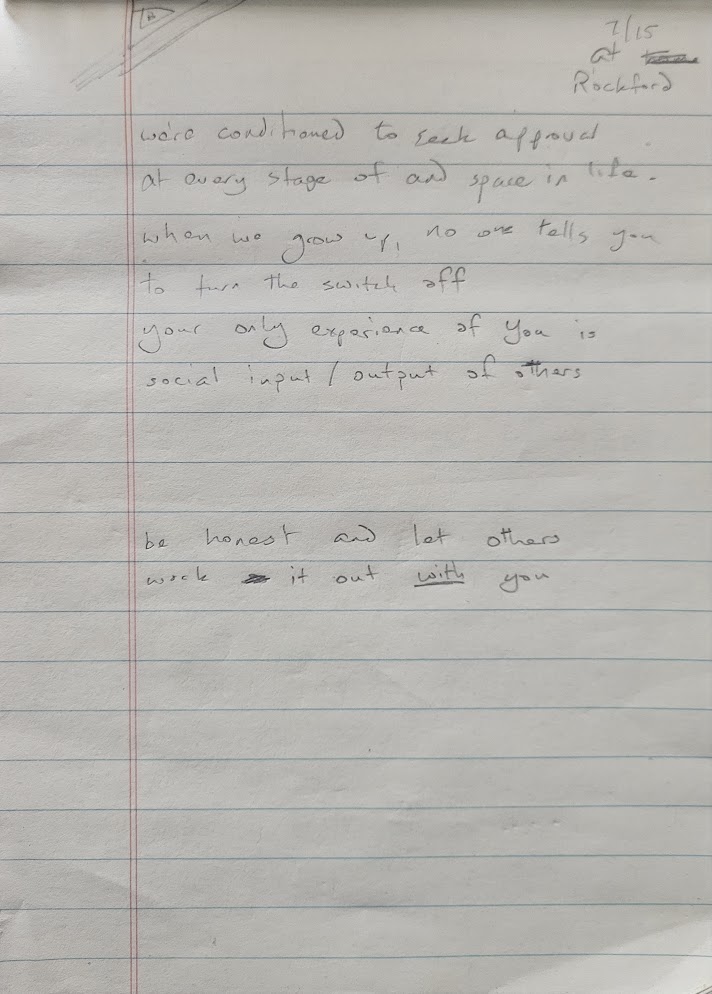 7/15
at
Rockford
we're conditioned to seek approval
at every stage of and space in life.
when we grow up, no one tells you
to turn the switch off
your only experience of you is
social input / output of others
be honest and let others
work it out with you